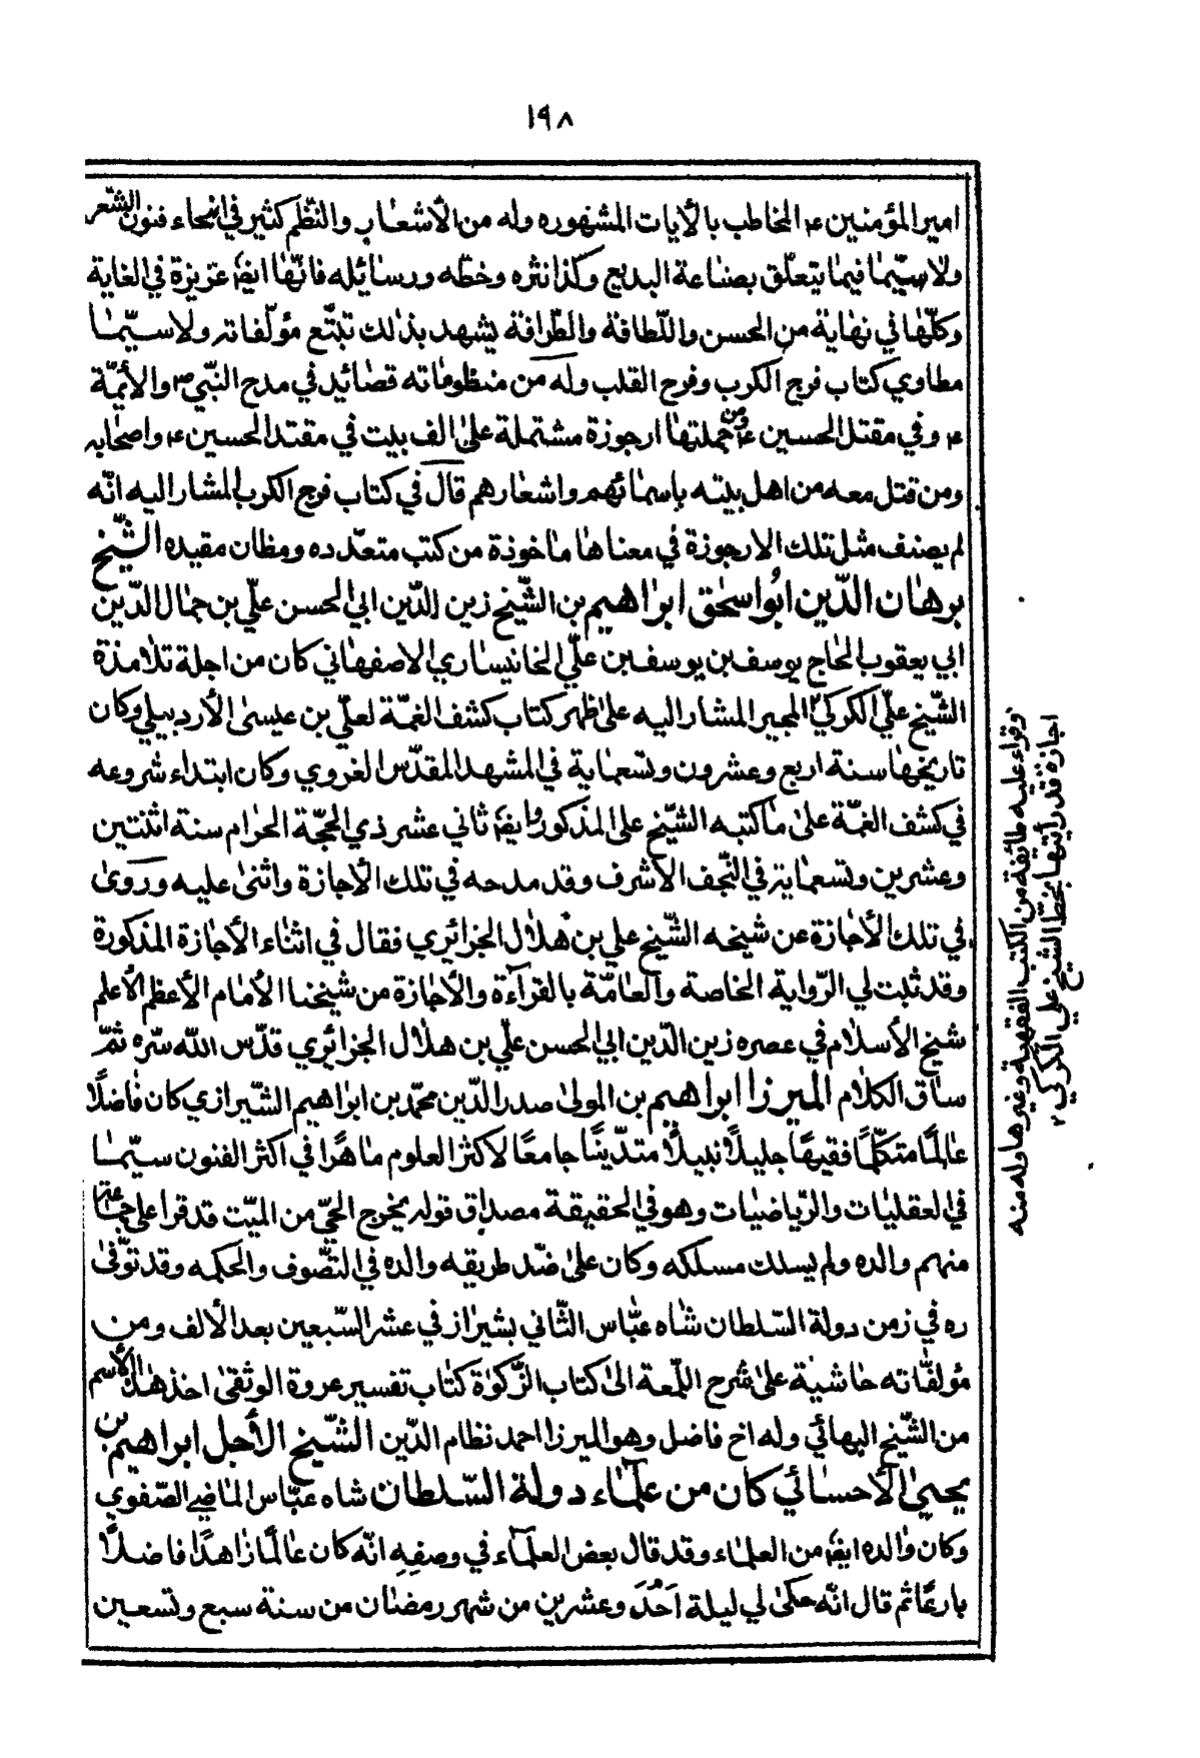 ١٩٨
امير المؤمنين ع المخاطب بالأيات المشهوره وله من الأشعار والنظم كثير في انحاء فنون الشعر
ولا سيّما فيما يتعلّق بصناعة البديع وكذا نثره وخطّه ورسائله فانّها ايضا عزيزة في الغاية
وكلّها في نهاية من الحسن واللّطافة والظّرافة يشهد بذلك تتبّع مؤلّفاته ولا سيّما
مطاوي كتاب فرج الكرب وفرح القلب وله من منظوماته قصائد في مدح النّبي ص والأئمّة
ع وفي مقتل الحسين ع ومن جملتها ارجوزة مشتملة على الف بيت في مقتل الحسين ع واصحابه
ومن قتل معه من اهل بيته باسمائهم واشعارهم قال في كتاب فرج الكرب المشار اليه انّه
لم يصنف مثل تلك الارجوزة في معناها ماخوذة من كتب متعدّده ومظان مقيده الشّيخ
برهان الدّين ابو اسحٰق ابراهيم بن الشّيخ زين الدّين ابي الحسن علّي بن جمال الدّين
ابي يعقوب الحاج يوسف بن يوسف بن علّي الخانيساري الاصفهاني كان من اجلة تلامذة
الشّيخ علّي الكركي المجيز المشار اليه على ظهر كتاب كشف الغمّة لعلّي بن عيسى الأردبيلي وكان
تاريخها سنة اربع وعشرون وتسعماية في المشهد المقدّس الغروي وكان ابتداء شروعه
في كشف الغمّة على ما كتبه الشّيخ على المذكور ايضا ثاني عشر ذي الحجّة الحرام سنة اثنتين
وعشرين وتسعماية في النّجف الأشرف وقد مدحه في تلك الأجازة واثنى عليه وروى
في تلك الأجازة عن شيخه الشّيخ علي بن هلال الجزائري فقال في اثناء الأجازة المذكورة
وقد ثبت لي الرّواية الخاصة والعامّة بالقراءة والأجازة من شيخنا الأمام الأعظم الأعلم
شيخ الأسلام في عصره زين الدّين ابي الحسن علّي بن هلال الجزائري قدّس اللّه سّره ثمّ
ساق الكلام الميرزا ابراهيم بن المولى صدر الدّين محمّد بن ابراهيم الشّيرازي كان فاضلًا
عالمًا متكلّمًا فقيهًا جليلًا نبيلًا متديّنًا جامعًا لأكثر العلوم ماهرًا في اكثر الفنون سيّما
في العقليات والرّياضيات وهو في الحقيقة مصداق قوله يخرج الحّي من الميّت قد قرا على جماعة
منهم والده ولم يسلك مسلكه وكان على ضّد طريقه والده في التّصوف والحكمه وقد توّفى
ره في زمن دولة السّلطان شاه عبّاس الثّاني بشيراز في عشر السّبعين بعد الألف ومن
مؤلفّاته حاشية على شرح اللّمعة الى كتاب الزّكوة كتاب تفسير عروة الوثقى اخذ هذا الأسم
من الشّيخ البهائي وله اخ فاضل وهو الميرزا احمد نظام الدّين الشّيخ الأجل ابراهيم بن
يحيى الأحسائي كان من علماء دولة السّلطان شاه عبّاس الماضي الصّفوي
وكان والده ايضا من العلماء وقد قال بعض العلماء في وصفه انّه كان عالمًا زاهدًا فاضلًا
بارعًا ثم قال انّه حكى لي ليلة اَحَد وعشرين من شهر رمضان من سنة سبع وتسعين
وقراء عليه طائفة من الكتب الفقهية وغيرها وله منه
اجازة قد رأيتها بخط الشيخ علي الكركي